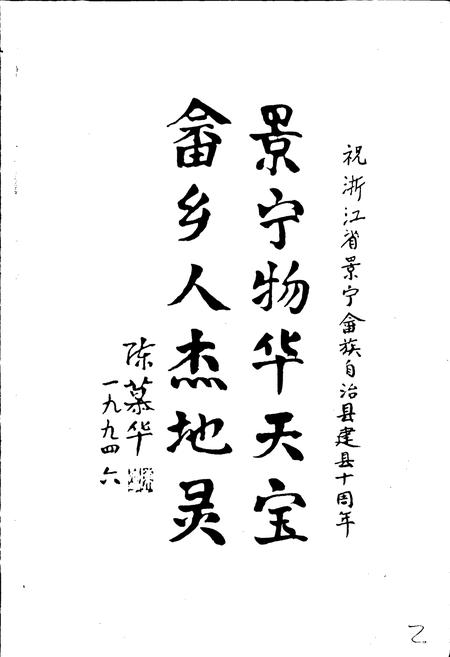 祝浙江省景宁畲族自治县建县十周年
景宁物华天宝
畲乡人杰地灵
陈慕华
一九九四六
2